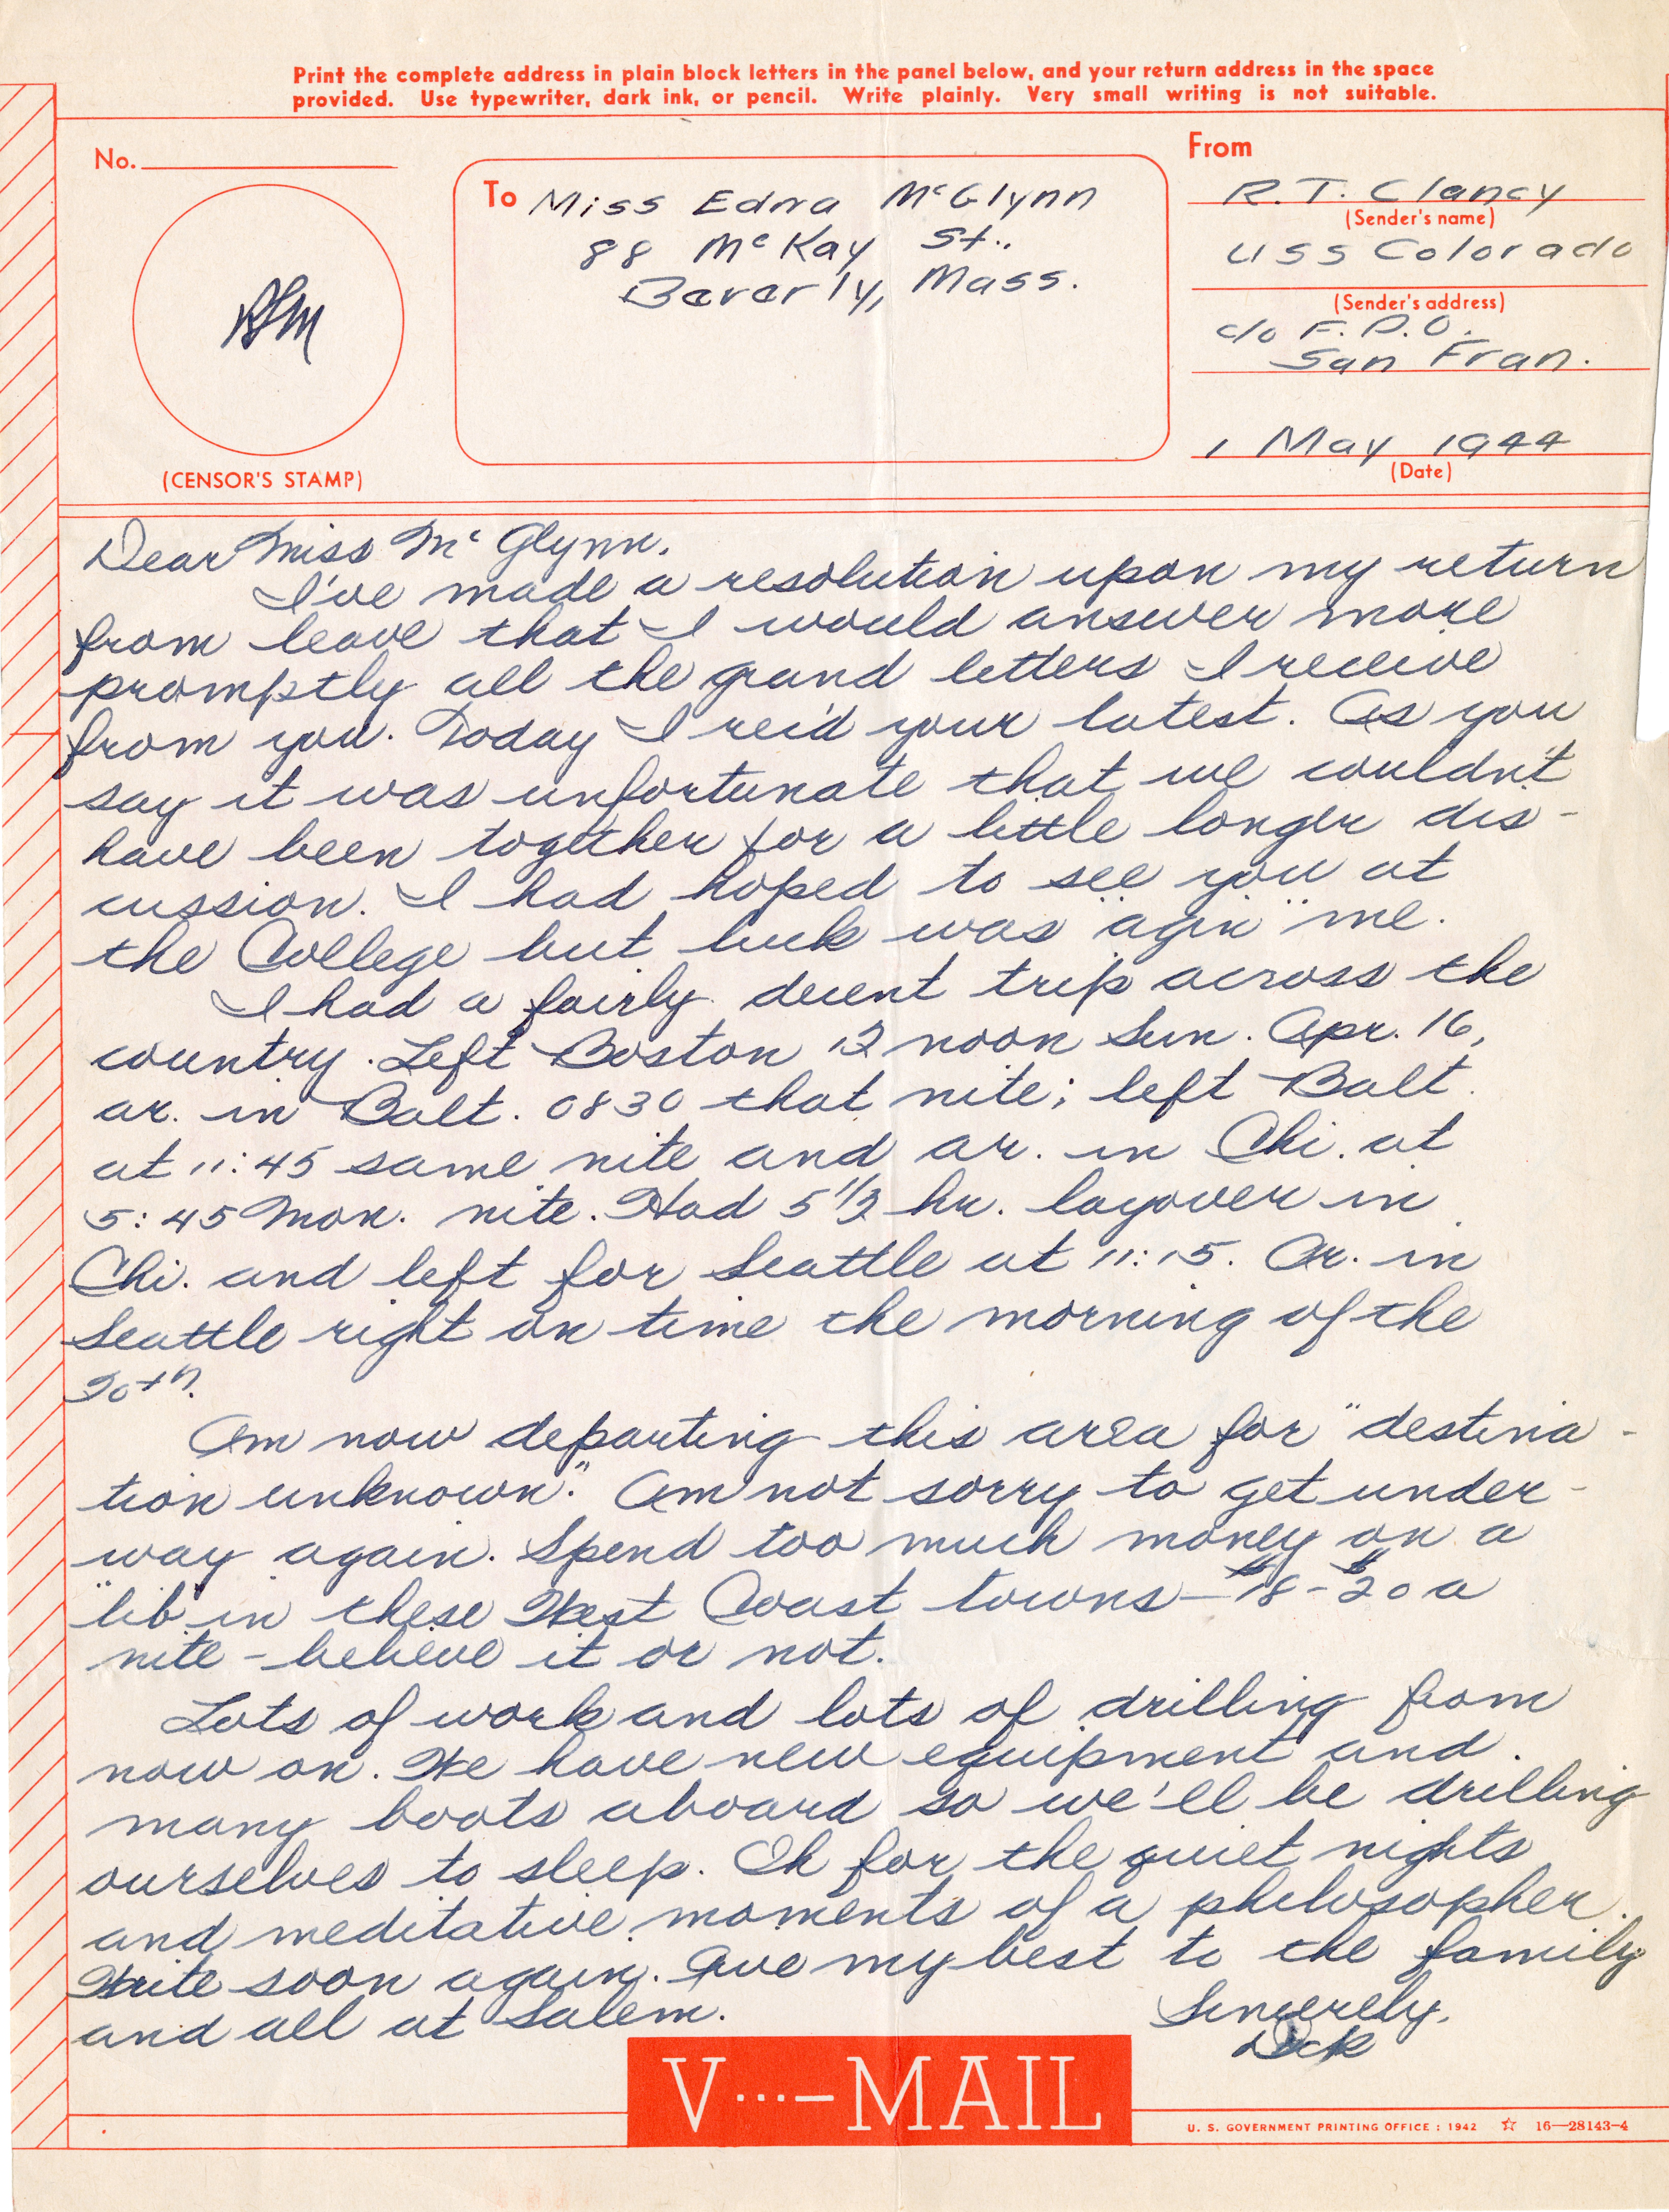 Print the complete address in plain block letters in the panel below, and your return address in the space
provided. Use typewriter, dark ink, or pencil. Write plainly. Very small writing is not suitable.
No.
(CENSOR'S STAMP)
To Miss Edna McGlynn
88 McKay St.,
Beverly, Mass.
From
R.T. Clancy
(Sender's name)
USS Colorado
(Sender's address)
c/o F.P.O.
San Fran.
1 May 1944
(Date)
Dear Miss McGlynn,
I've made a resolution upon my return
from leave that I would answer more
promptly all the grand letters I receive
from you. Today I rec'd your latest. As you
say it was unfortunate that we couldn't
have been together for a little longer dis-
cussion. I had hoped to see you at
the College but luck was "agin" me.
I had a fairly decent trip across the
country. Left Boston 12 noon Sun. Apr. 16,
ar. in Balt. 0830 that nite; left Balt.
at 11:45 same nite and ar. in Chi. at
5:45 Mon. nite. Had 5 1/2 hr. layover in
Chi. and left for Seattle at 11:15. Ar. in
Seattle right on time the morning of the
20th.
Am now departing this area for "destina-
tion unknown." Am not sorry to get under-
way again. Spend too much money on a
"lib" in these West Coast towns - $18 - $20 a
nite - believe it or not.
Lots of work and lots of drilling from
now on. We have new equipment and
many boots aboard so we'll be drilling
ourselves to sleep. Oh for the quiet nights
and meditative moments of a philosopher.
Write soon again. Give my best to the family
and all at Salem.
Sincerely,
Dick
V···—MAIL
U. S. GOVERNMENT PRINTING OFFICE : 1942 ☆ 16—28143-4